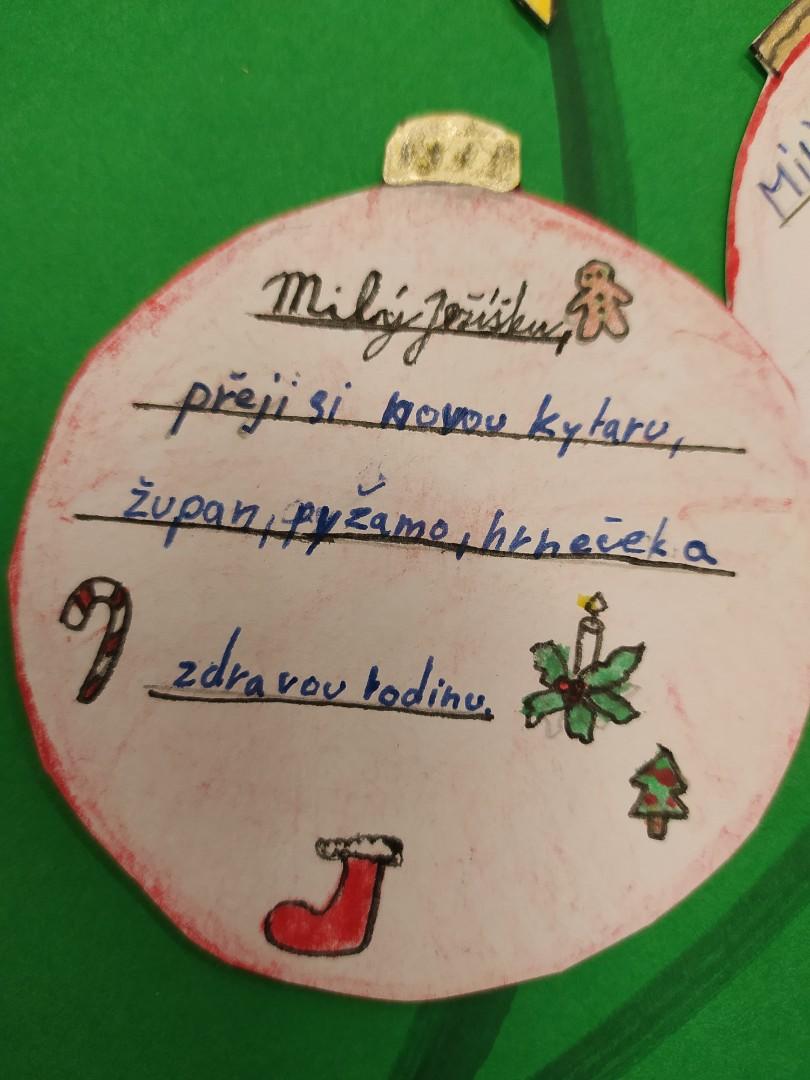 Milý Ježíšku,
přeji si novou kytaru,
župan, pyžamo, hrneček a
zdravou rodinu.